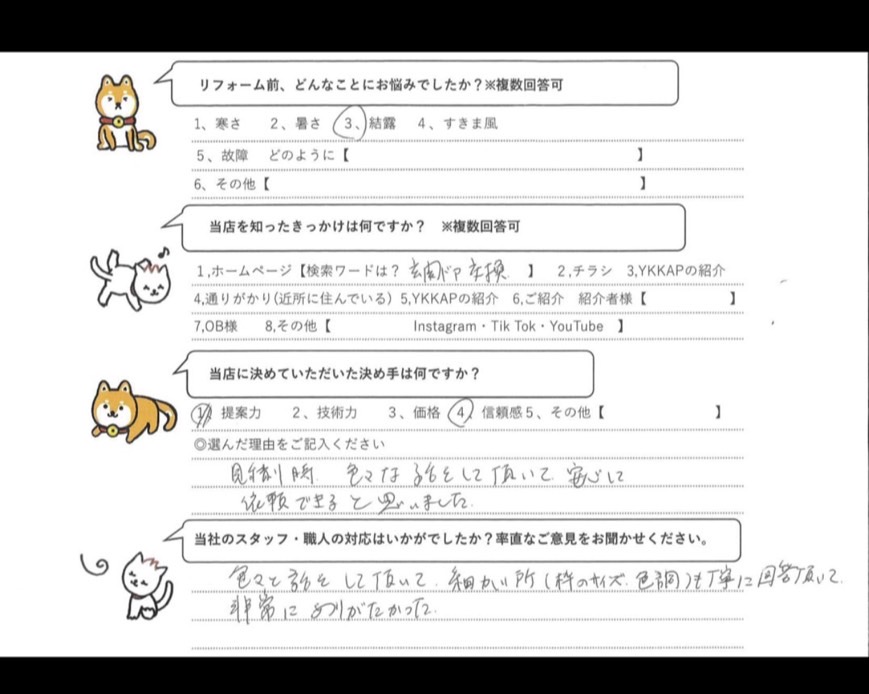 リフォーム前、どんなことにお悩みでしたか？※複数回答可
1、寒さ　2、暑さ　3、結露　4、すきま風
5、故障　どのように【　】
6、その他【　】
当店を知ったきっかけは何ですか？　※複数回答可
1,ホームページ【検索ワードは？ 玄関ドア 交換 】　2,チラシ　3,YKKAPの紹介
4,通りがかり(近所に住んでいる) 5,YKKAPの紹介　6,ご紹介　紹介者様【　】
7,OB様　8,その他【　Instagram・Tik Tok・YouTube　】
当店に決めていただいた決め手は何ですか？
1、提案力　2、技術力　3、価格　4、信頼感 5、その他【　】
◎選んだ理由をご記入ください
見積り時、色々な話をして頂いて、安心して
依頼できると思いました。
当社のスタッフ・職人の対応はいかがでしたか？率直なご意見をお聞かせください。
色々と話をして頂いて、細かい所(枠のサイズ、色調)も丁寧に回答頂いて、
非常にありがたかった。